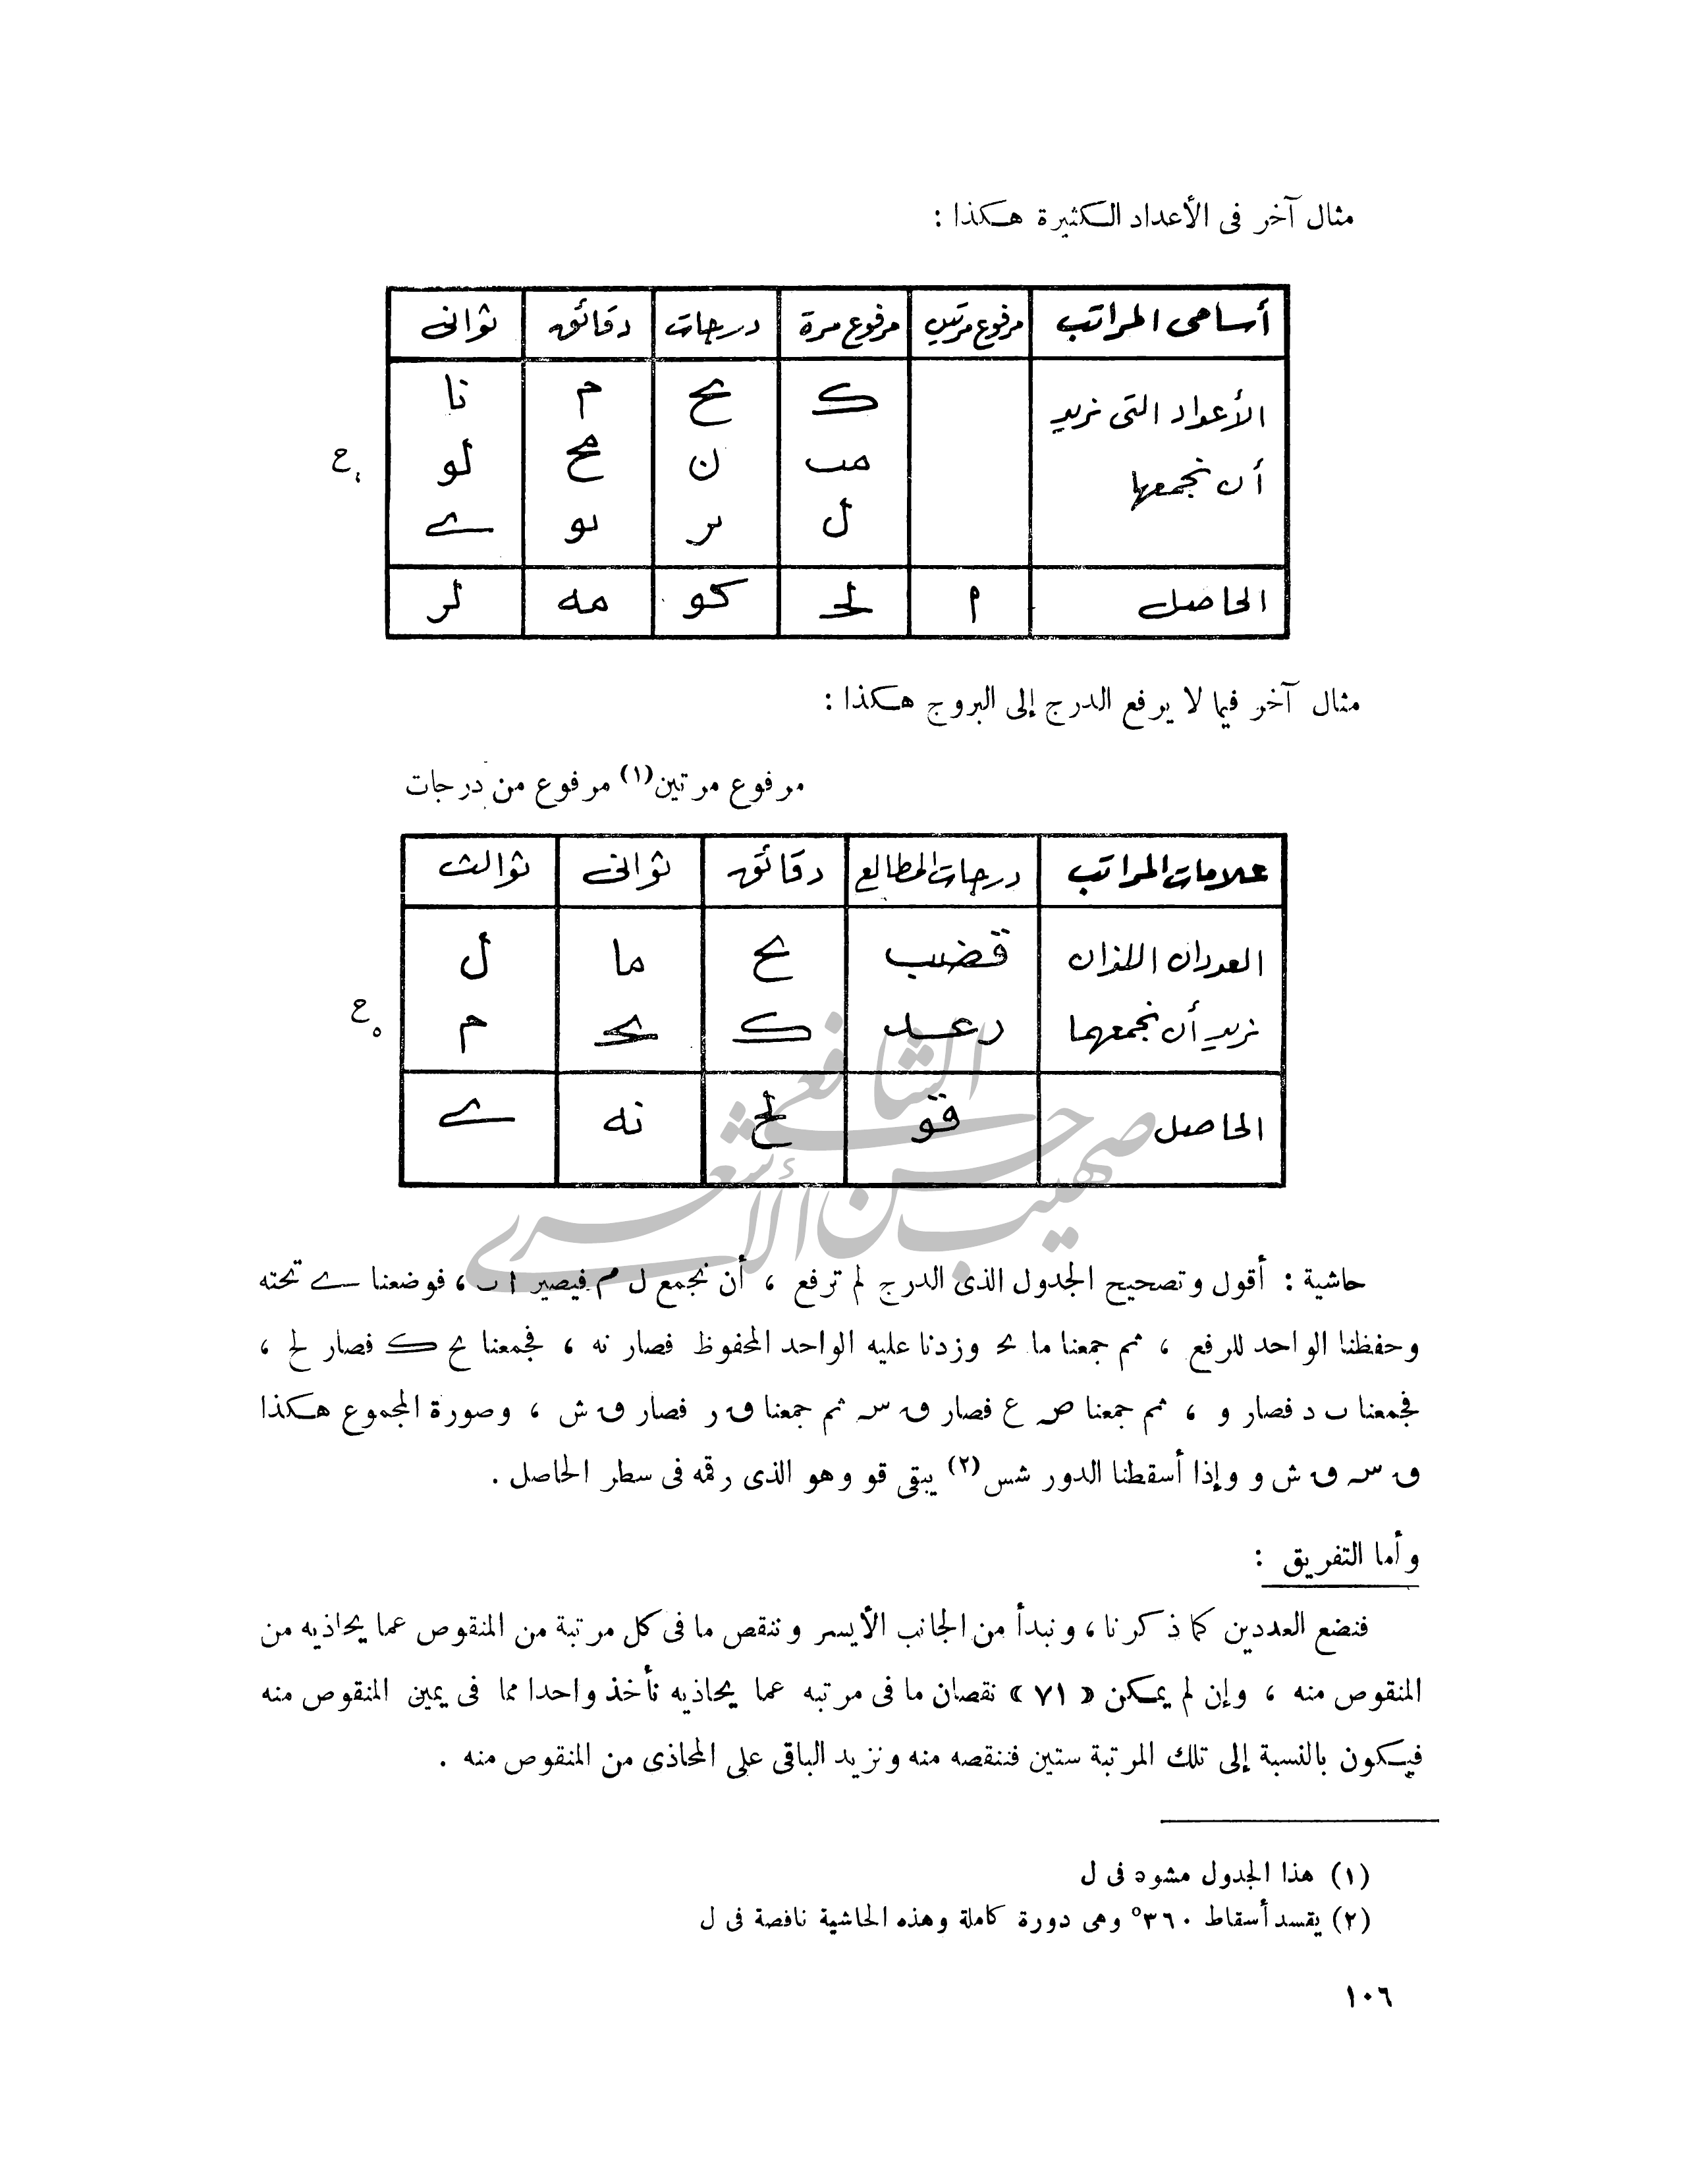 مثال آخر فى الأعداد الكثيرة هكذا :
أسامى المراتب مرفوع مرتين مرفوع مرة درجات دقائق ثوانى
الأعداد التى نريد
أن نجمعها
ك يح م نا
مب ن مح لو
ل ير يو ى
الحاصل ا لح كو مه لر
مثال آخر فيما لا يرفع الدرج إلى البروج هكذا :
مرفوع مرتين (١) مرفوع من درجات
علامات المراتب درجات المطالع دقائق ثوانى ثوالث
العددان اللذان قضب يح ما ل
نريد أن نجمعهما رعد ك يح م
الحاصل قو لح نه ى
صهيب حسن الشافعي الأشعري
حاشية : أقول وتصحيح الجدول الذى الدرج لم ترفع ، أن نجمع ل م فيصير ا ى ، فوضعنا ى تحته
وحفظنا الواحد للرفع ، ثم جمعنا ما يح وزدنا عليه الواحد المحفوظ فصار نه ، فجمعنا يح ك فصار لح ،
فجمعنا ب د فصار و ، ثم جمعنا ص ع فصار ق س ثم جمعنا ق ر فصار ق ش ، وصورة المجموع هكذا
ق س ق ش و وإذا أسقطنا الدور شس (٢) يبقى قو وهو الذى رقمه فى سطر الحاصل .
وأما التفريق :
فنضع العددين كما ذكرنا ، ونبدأ من الجانب الأيسر وننقص ما فى كل مرتبة من المنقوص عما يحاذيه من
المنقوص منه ، وإن لم يمكن « ٧١ » نقصان ما فى مرتبه عما يحاذيه نأخذ واحدا مما فى يمين المنقوص منه
فيكون بالنسبة إلى تلك المرتبة ستين فننقصه منه ونزيد الباقى على المحاذى من المنقوص منه .
(١) هذا الجدول مشوه فى ل
(٢) يقسد أسقاط ٣٦٠° وهى دورة كاملة وهذه الحاشية نافصة فى ل
١٠٦